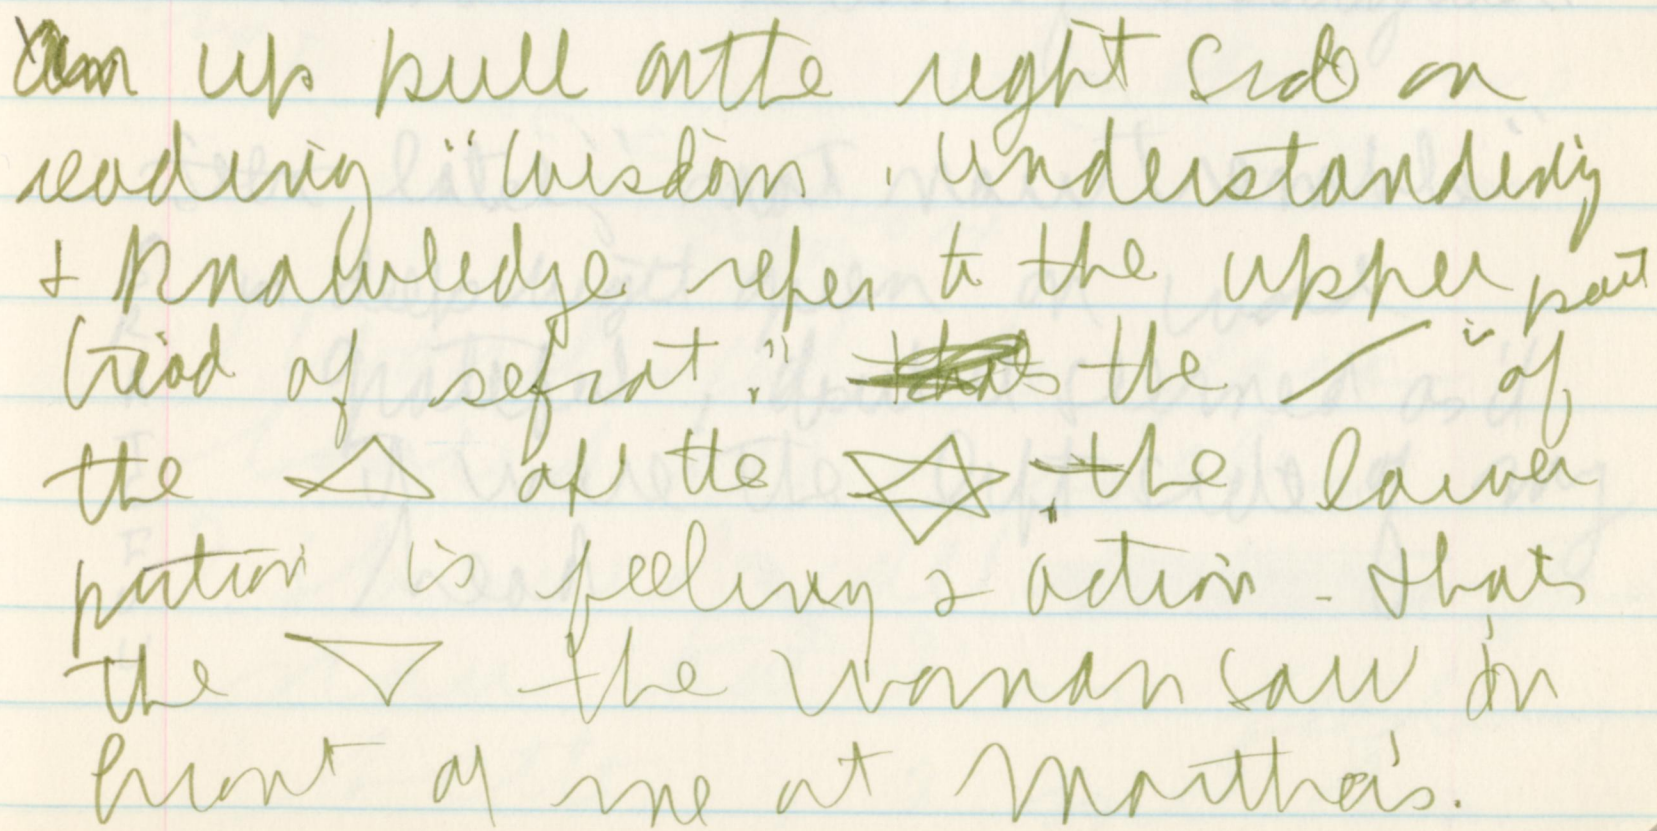 up pull on the right side on
reading "Wisdom, Understanding
+ Knowledge refer to the upper part
triad of sefirot." the of
the △ of the ✡ the lower
portion is feeling & action - thats
the ▽ the woman saw in
front of me at Martha's.